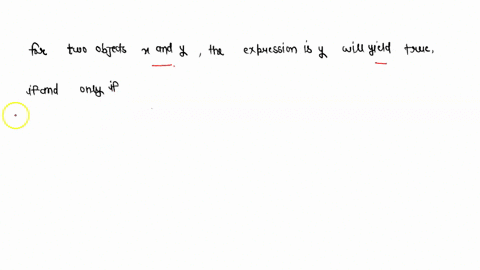 for two objects x and y, the expression is y will yield true,
if and only if